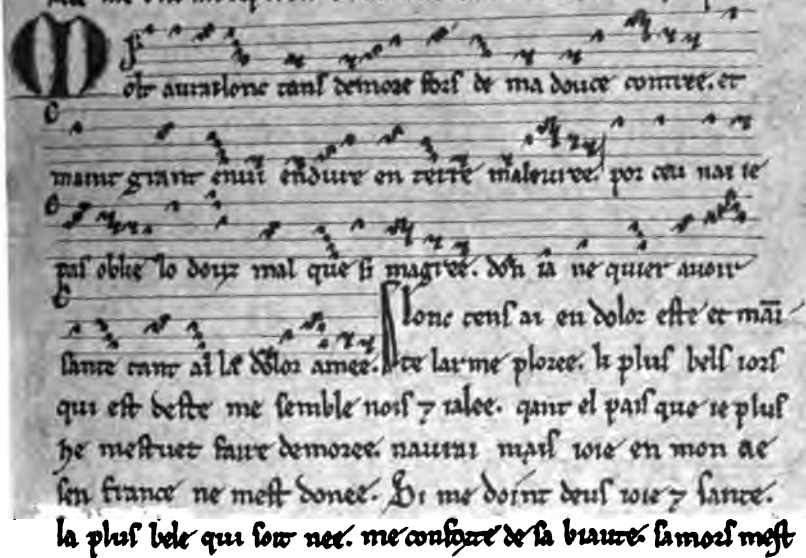 olt aurai lonc tans demore fors de ma douce contree. et
maint grant enui endure en terre maleuree. por ceu nai ie
pas oblie lo douz mal que si magree. don ia ne quier auoir
sante tant ai la dolor amee.
Lonc tens ai en dolor este et mai
te larme ploree. li plus bels iors
qui est deste me semble nois ⁊ ialee. qant el pais que ie plus
he mestuet faire demoree. naurai mais ioie en mon ae
sen france ne mest donee. Si me doint deus ioie ⁊ sante.
la plus bele qui soit nee. me conforte de sa biaute. samors mest